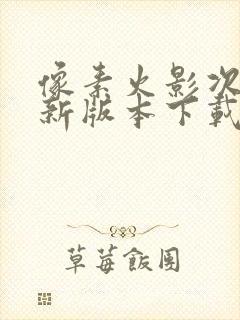 像素火影次
新版本下载
草莓飯團